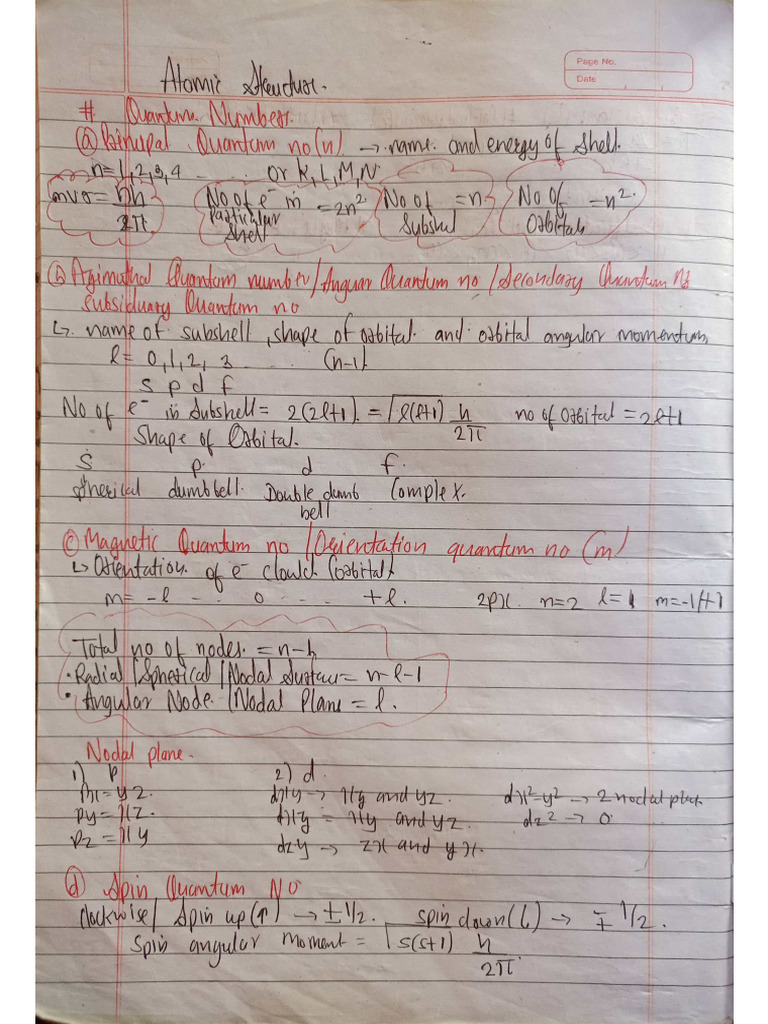 Page No.
Date
Atomic Structure.
# Quantum Number.
(a) Principal Quantum no (n) → name and energy of shell.
n = 1, 2, 3, 4 ...... or K, L, M, N.
mvr = nh/2π No of e⁻ in particular shell = 2n² No of Subshell = n No of Orbitals = n².
(b) Azimuthal Quantum number / Anguar Quantum no / Secondary Quantum No
Subsiduary Quantum no
↳ name of subshell, shape of orbital and orbital angular momentum,
l = 0, 1, 2, 3 (n-1)
s p d f
No of e⁻ in Subshell = 2(2l+1). = √l(l+1) h/2π no of orbital = 2l+1
Shape of Orbital.
s p. d f.
Spherical dumbbell. Double dumb Complex.
bell
(c) Magnetic Quantum no / Orientation quantum no (m)
↳ Orientation of e⁻ clould (orbital)
m = -l .. 0 ... +l. 2px. n=2 l=1 m=-1/+1
Total no of nodes. = n-1
• Radial / Spherical / Nodal Surface = n-l-1
• Angular Node / Nodal Plane = l.
Nodal plane.
1) p 2) d.
px = yz. dxy → xy and yz. dx²-y² → 2 nodal plan
py = xz. dxy = xy and yz. dz² → 0
pz = xy dzy → zx and yx.
(d) Spin Quantum No
clockwise / Spin up (↑) → ±1/2. spin down (↓) → ∓1/2.
Spin angular moment = √s(s+1) h/2π.